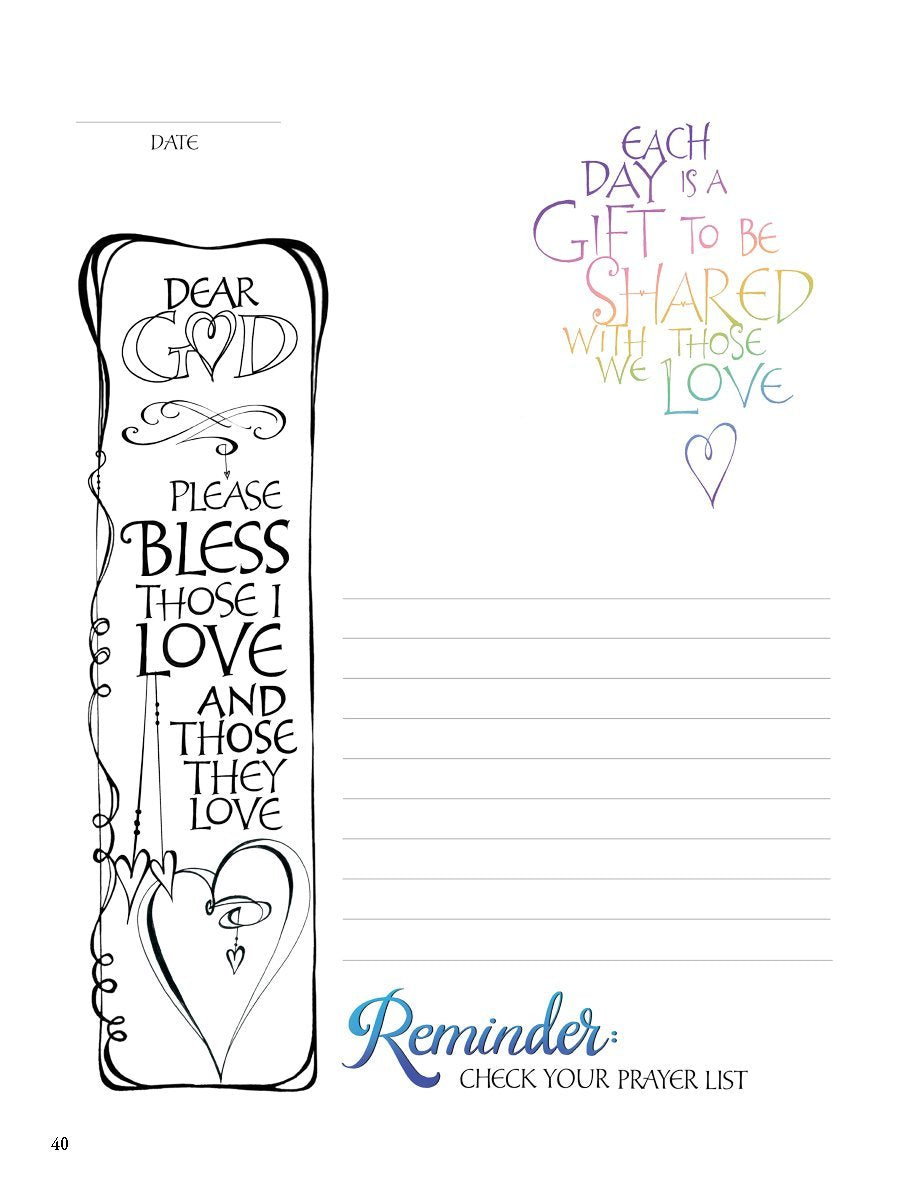 DATE
EACH
DAY IS A
GIFT TO BE
SHARED
WITH THOSE
WE LOVE
DEAR
GOD
PLEASE
BLESS
THOSE I
LOVE
AND
THOSE
THEY
LOVE
Reminder:
CHECK YOUR PRAYER LIST
40